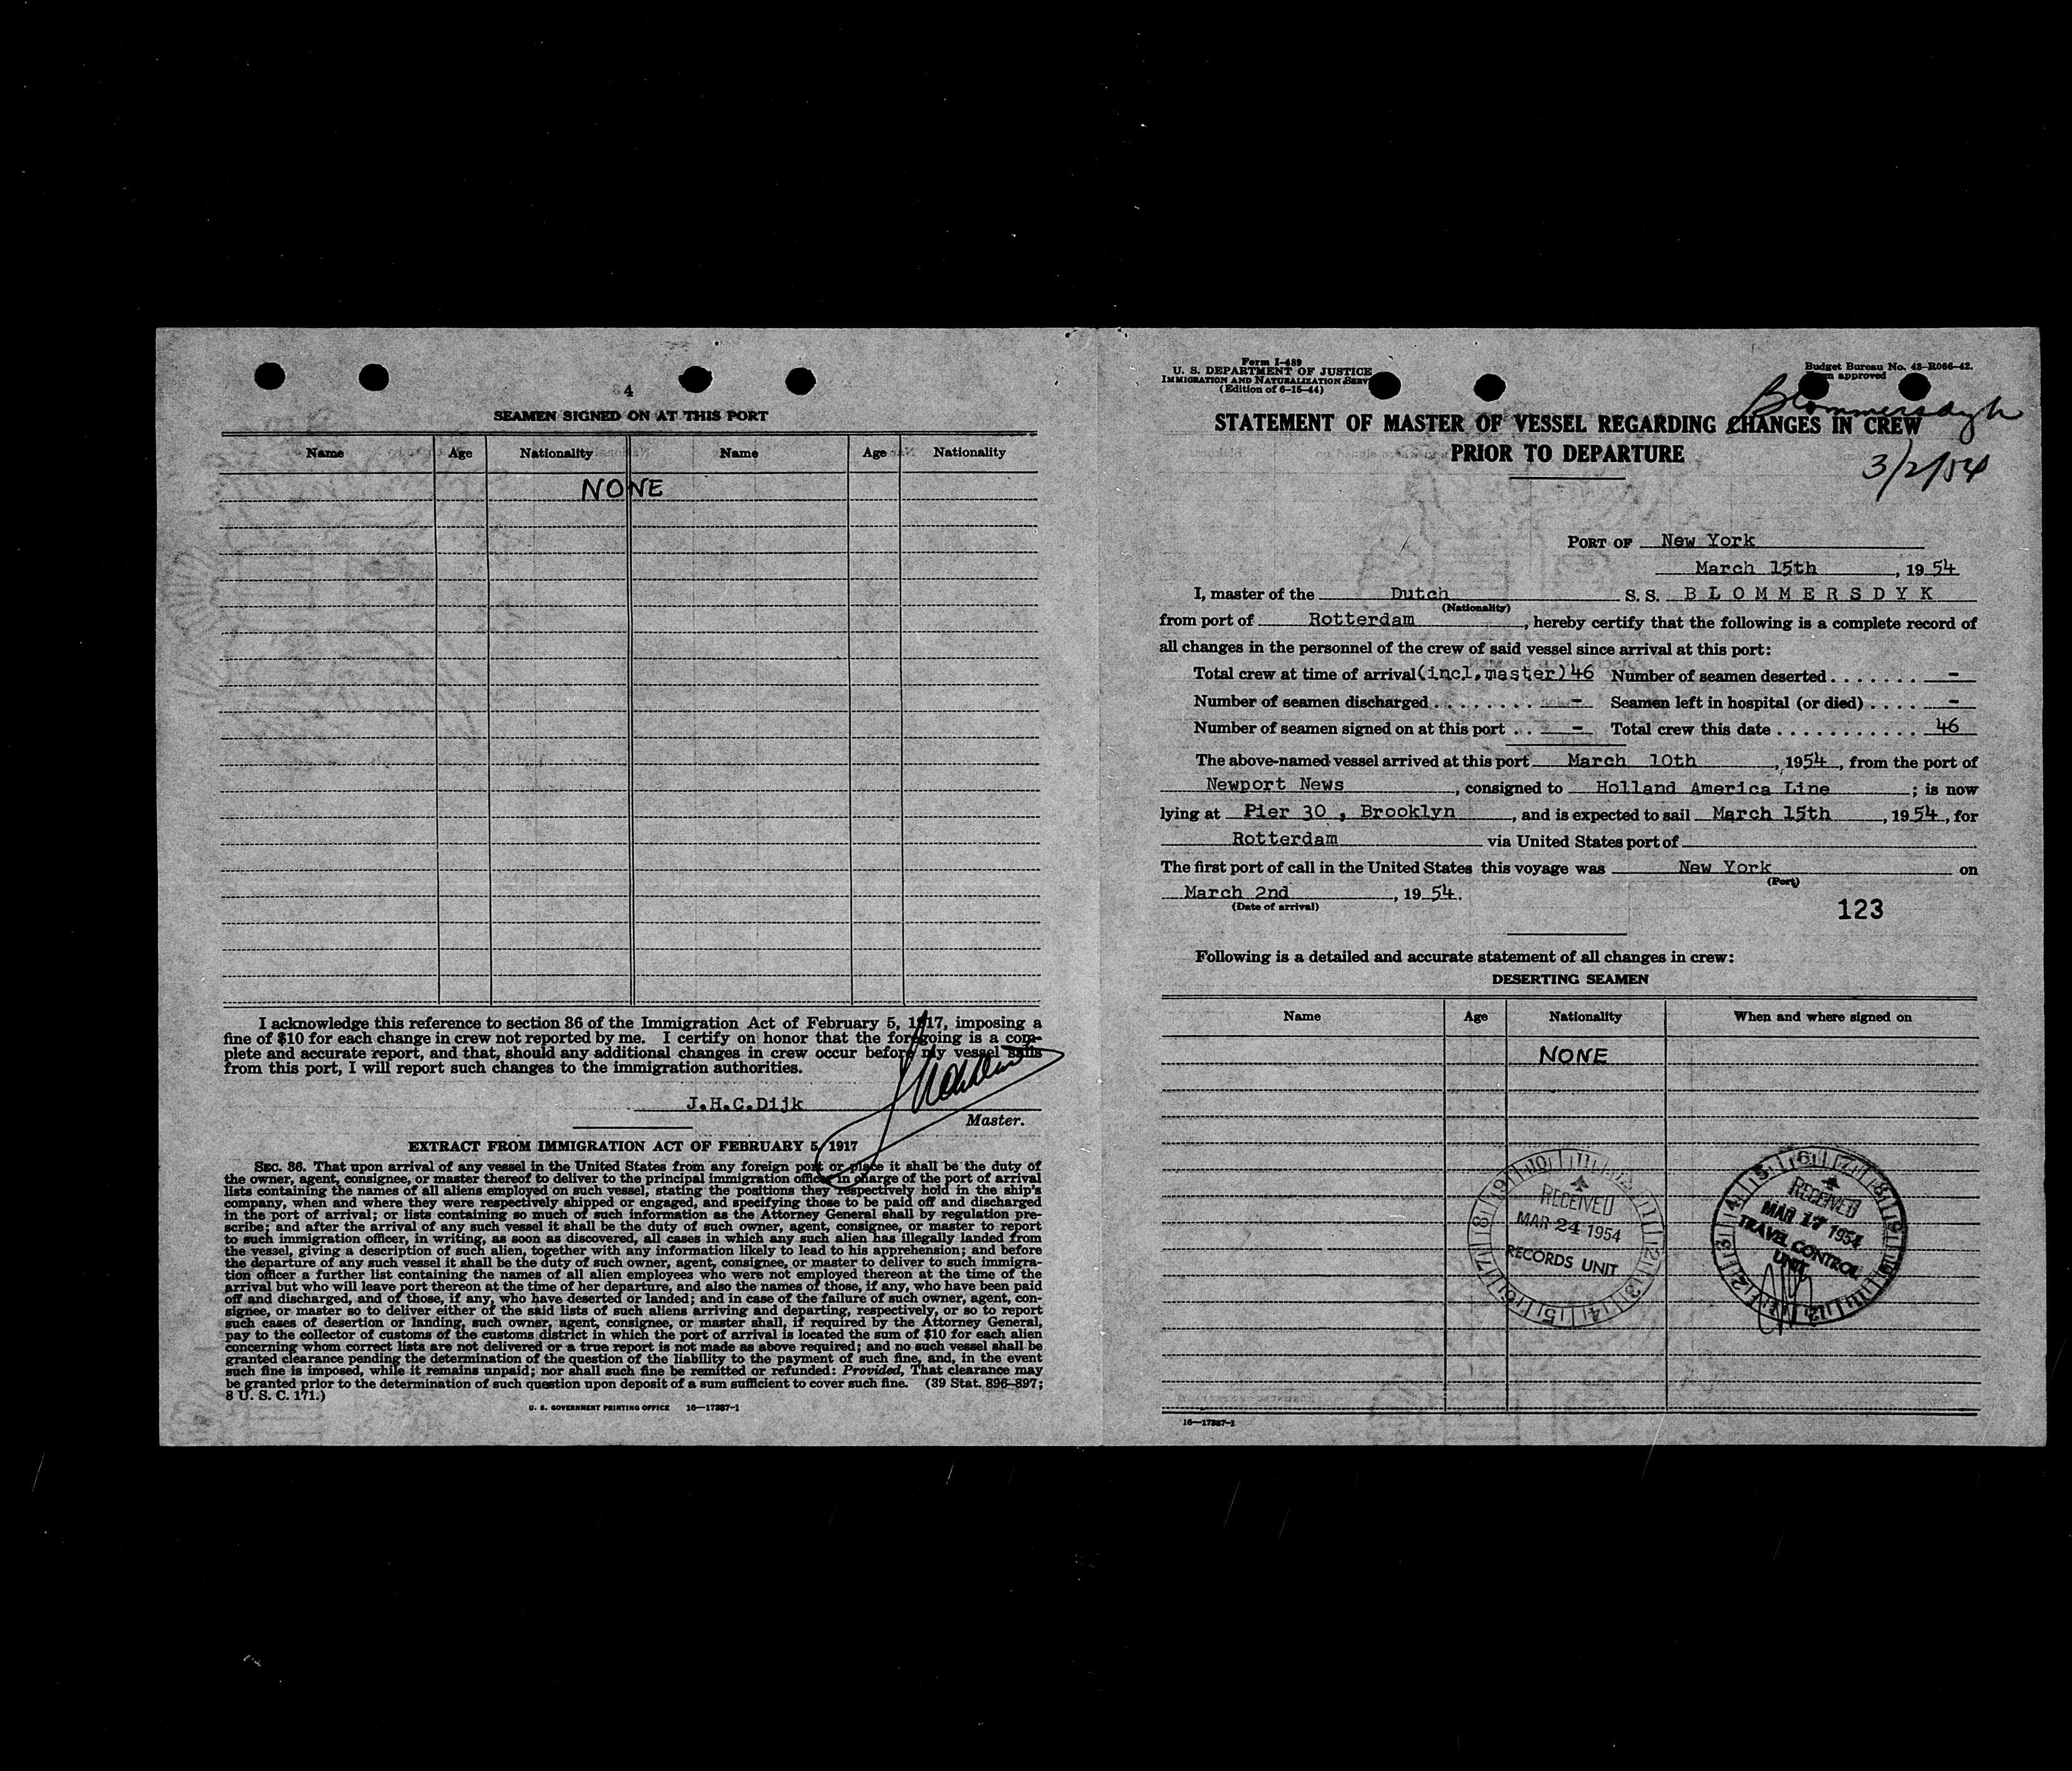 4
SEAMEN SIGNED ON AT THIS PORT
Name Age Nationality Name Age Nationality
NONE
I acknowledge this reference to section 36 of the Immigration Act of February 5, 1917, imposing a
fine of $10 for each change in crew not reported by me. I certify on honor that the foregoing is a com-
plete and accurate report, and that, should any additional changes in crew occur before my vessel sails
from this port, I will report such changes to the immigration authorities.
J.H.C.Dijk
Master.
EXTRACT FROM IMMIGRATION ACT OF FEBRUARY 5, 1917
SEC. 36. That upon arrival of any vessel in the United States from any foreign port or place it shall be the duty of
the owner, agent, consignee, or master thereof to deliver to the principal immigration officer in charge of the port of arrival
lists containing the names of all aliens employed on such vessel, stating the positions they respectively hold in the ship's
company, when and where they were respectively shipped or engaged, and specifying those to be paid off and discharged
in the port of arrival; or lists containing so much of such information as the Attorney General shall by regulation pre-
scribe; and after the arrival of any such vessel it shall be the duty of such owner, agent, consignee, or master to report
to such immigration officer, in writing, as soon as discovered, all cases in which any such alien has illegally landed from
the vessel, giving a description of such alien, together with any information likely to lead to his apprehension; and before
the departure of any such vessel it shall be the duty of such owner, agent, consignee, or master to deliver to such immigra-
tion officer a further list containing the names of all alien employees who were not employed thereon at the time of the
arrival but who will leave port thereon at the time of her departure, and also the names of those, if any, who have been paid
off and discharged, and of those, if any, who have deserted or landed; and in case of the failure of such owner, agent, con-
signee, or master so to deliver either of the said lists of such aliens arriving and departing, respectively, or so to report
such cases of desertion or landing, such owner, agent, consignee, or master shall, if required by the Attorney General,
pay to the collector of customs of the customs district in which the port of arrival is located the sum of $10 for each alien
concerning whom correct lists are not delivered or a true report is not made as above required; and no such vessel shall be
granted clearance pending the determination of the question of the liability to the payment of such fine, and, in the event
such fine is imposed, while it remains unpaid; nor shall such fine be remitted or refunded: Provided, That clearance may
be granted prior to the determination of such question upon deposit of a sum sufficient to cover such fine. (39 Stat. 896-897;
8 U. S. C. 171.)
U. S. GOVERNMENT PRINTING OFFICE 16—17387-1
Form I-489
U. S. DEPARTMENT OF JUSTICE
IMMIGRATION AND NATURALIZATION SERV
(Edition of 6-15-44)
Budget Bureau No. 43-R066-42.
approved
Blommersdyk
STATEMENT OF MASTER OF VESSEL REGARDING CHANGES IN CREW
PRIOR TO DEPARTURE
3/2/54
PORT OF New York
March 15th, 1954
I, master of the Dutch S. S. BLOMMERSDYK
(Nationality)
from port of Rotterdam, hereby certify that the following is a complete record of
all changes in the personnel of the crew of said vessel since arrival at this port:
Total crew at time of arrival (incl.master) 46 Number of seamen deserted . . . . . . . -
Number of seamen discharged . . . . . . . . - Seamen left in hospital (or died) . . . . -
Number of seamen signed on at this port . . - Total crew this date . . . . . . . . . . . 46
The above-named vessel arrived at this port March 10th, 1954, from the port of
Newport News, consigned to Holland America Line; is now
lying at Pier 30, Brooklyn, and is expected to sail March 15th, 1954, for
Rotterdam via United States port of
The first port of call in the United States this voyage was New York on
(Port)
March 2nd, 1954.
(Date of arrival)
123
Following is a detailed and accurate statement of all changes in crew:
DESERTING SEAMEN
Name Age Nationality When and where signed on
NONE
RECEIVED
MAR 24 1954
RECORDS UNIT
RECEIVED
MAR 17 1954
TRAVEL CONTROL
UNIT
16—17387-1